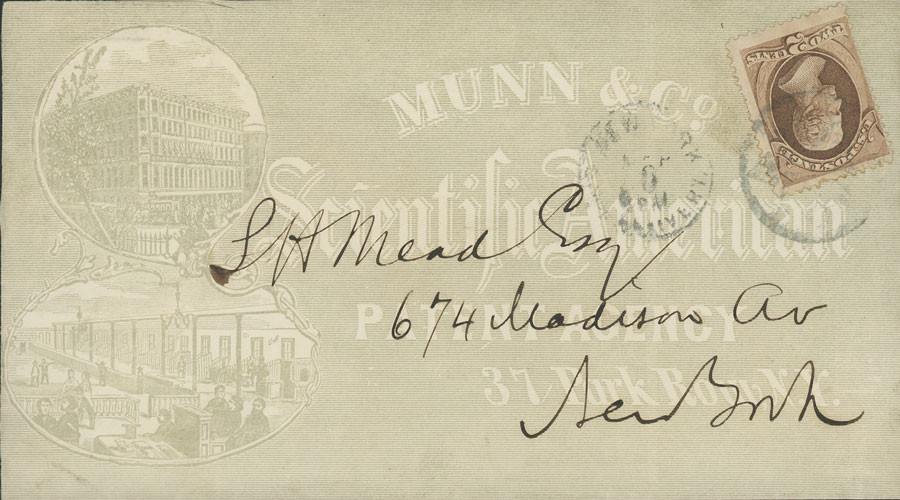 MUNN & Co.
Scientific American
PATENT AGENCY
37 Park Row, N.Y.
S H Mead Esq
674 Madison Av
New York
NEW YORK
6
DELIVERY